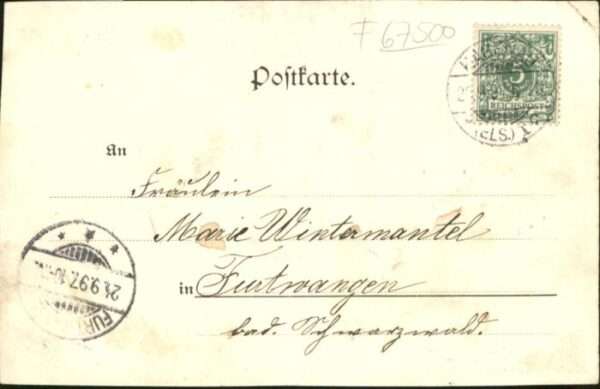 F 67500
Postkarte.
5
REICHSPOST
(ELS.)
An
Fräulein
Marie Wintermantel
in Furtwangen
bad. Schwarzwald.
24.9.97.